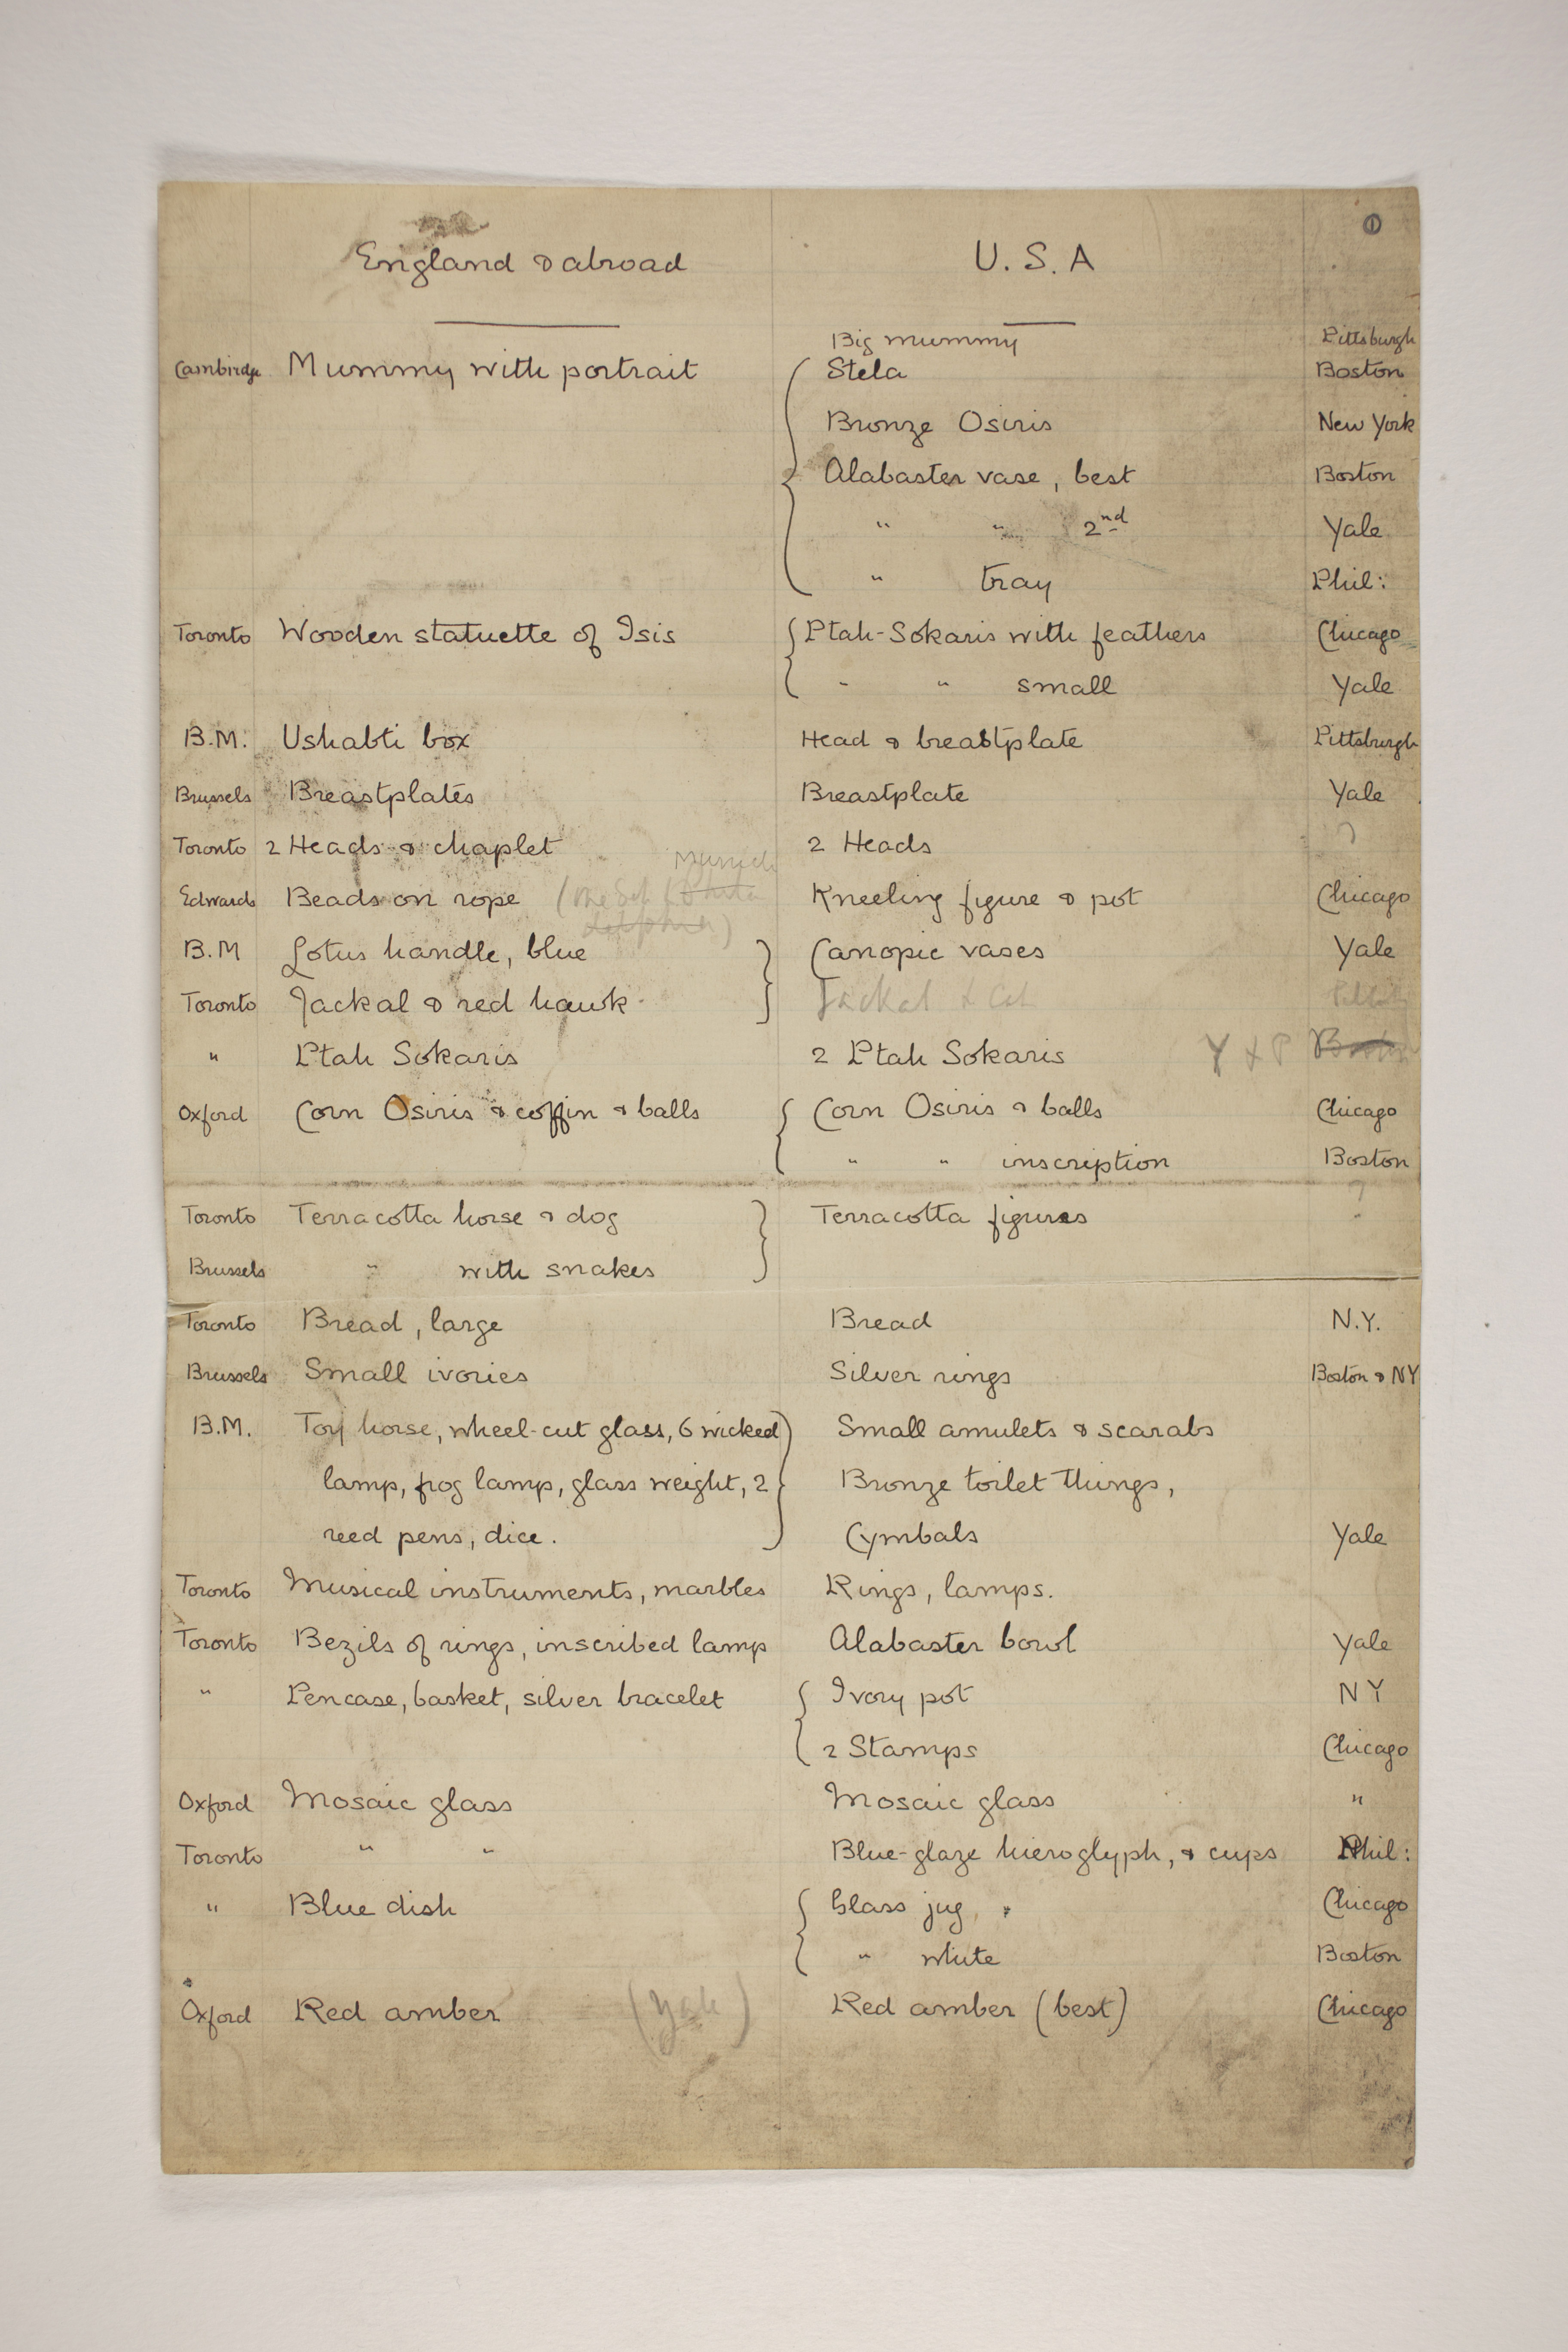 1
England & abroad U.S.A
Big mummy Pittsburgh
Cambirdge Mummy with portrait Stela Boston
Bronze Osiris New York
Alabaster vase, best Boston
" " 2nd Yale
" tray Phil:
Toronto Wooden statuette of Isis Ptah-Sokaris with feathers Chicago
" " small Yale
B.M. Ushabti box Head & breastplate Pittsburgh
Brussels Breastplates Breastplate Yale
Toronto 2 Heads & chaplet 2 Heads ?
Munich
Edwards Beads on rope (one set to Kneeling figure & pot Chicago
B.M Lotus handle, blue Canopic vases Yale
Toronto Jackal & red hawk Jackal & Cat
" Ptah Sokaris 2 Ptah Sokaris Y & P Boston
Oxford Corn Osiris & coffin & balls Corn Osiris & balls Chicago
" " inscription Boston
Toronto Terracotta horse & dog Terracotta figures ?
Brussels " with snakes
Toronto Bread, large Bread N.Y.
Brussels Small ivories Silver rings Boston & NY
B.M. Toy horse, wheel-cut glass, 6 wicked Small amulets & scarabs
lamp, frog lamp, glass weight, 2 Bronze toilet things,
reed pens, dice. Cymbals Yale
Toronto Musical instruments, marbles Rings, lamps.
Toronto Bezils of rings, inscribed lamp Alabaster bowl Yale
" Pencase, basket, silver bracelet Ivory pot NY
2 Stamps Chicago
Oxford Mosaic glass Mosaic glass "
Toronto " " Blue-glaze hieroglyph, & cups Phil:
" Blue dish Glass jug Chicago
" white Boston
Oxford Red amber (Yale) Red amber (best) Chicago